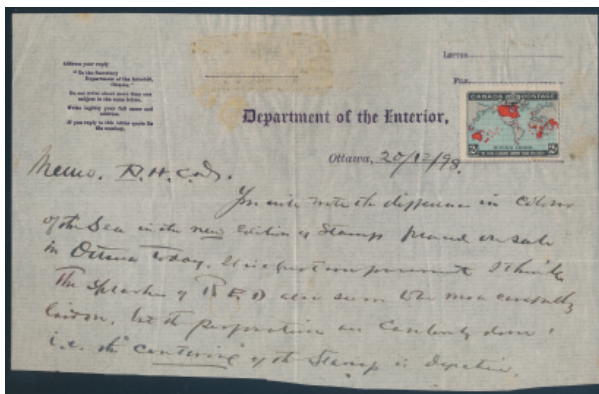 Address your reply
"To the Secretary
Department of the Interior,
Ottawa."
Do not write about more than one
subject in the same letter.
Write legibly your full name and
address.
If you reply to this letter quote its
file number.
LETTER
FILE
CANADA POSTAGE
2
2
Department of the Interior,
Ottawa, 20/12/98.
Memo.
You will note the difference in colour
of the Sea in the new Edition of Stamps placed on sale
in Ottawa today. It is a great improvement I think
The Splashes of RED also seem to be more carefully
but the perforations are carelessly done!
i.e. the "centering" of the Stamp is Defective.